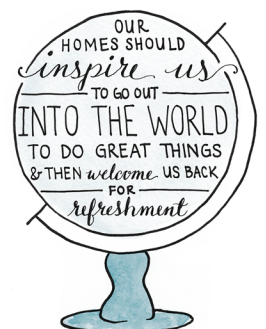 OUR
HOMES SHOULD
inspire us
TO GO OUT
INTO THE WORLD
TO DO GREAT THINGS
& THEN welcome US BACK
FOR
refreshment